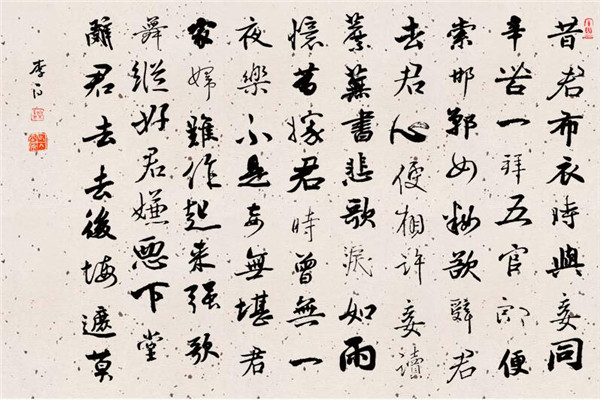 昔君布衣時與妾同
辛苦一拜五官郎便
索邯鄲女妾欲辭君
去君心便相許妾讀
蘼蕪書悲歌淚如雨
憶昔嫁君時曾無一
夜樂不是妾無堪君
家婦難作起來强歌
舞縱好君嫌惡下堂
辭君去去後悔遮莫
李白